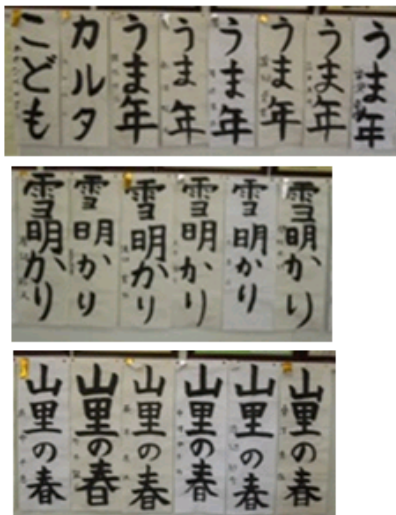 こども
カルタ
うま年
うま年
うま年
うま年
うま年
うま年
雪明かり
雪明かり
雪明かり
雪明かり
雪明かり
雪明かり
山里の春
山里の春
山里の春
山里の春
山里の春
山里の春